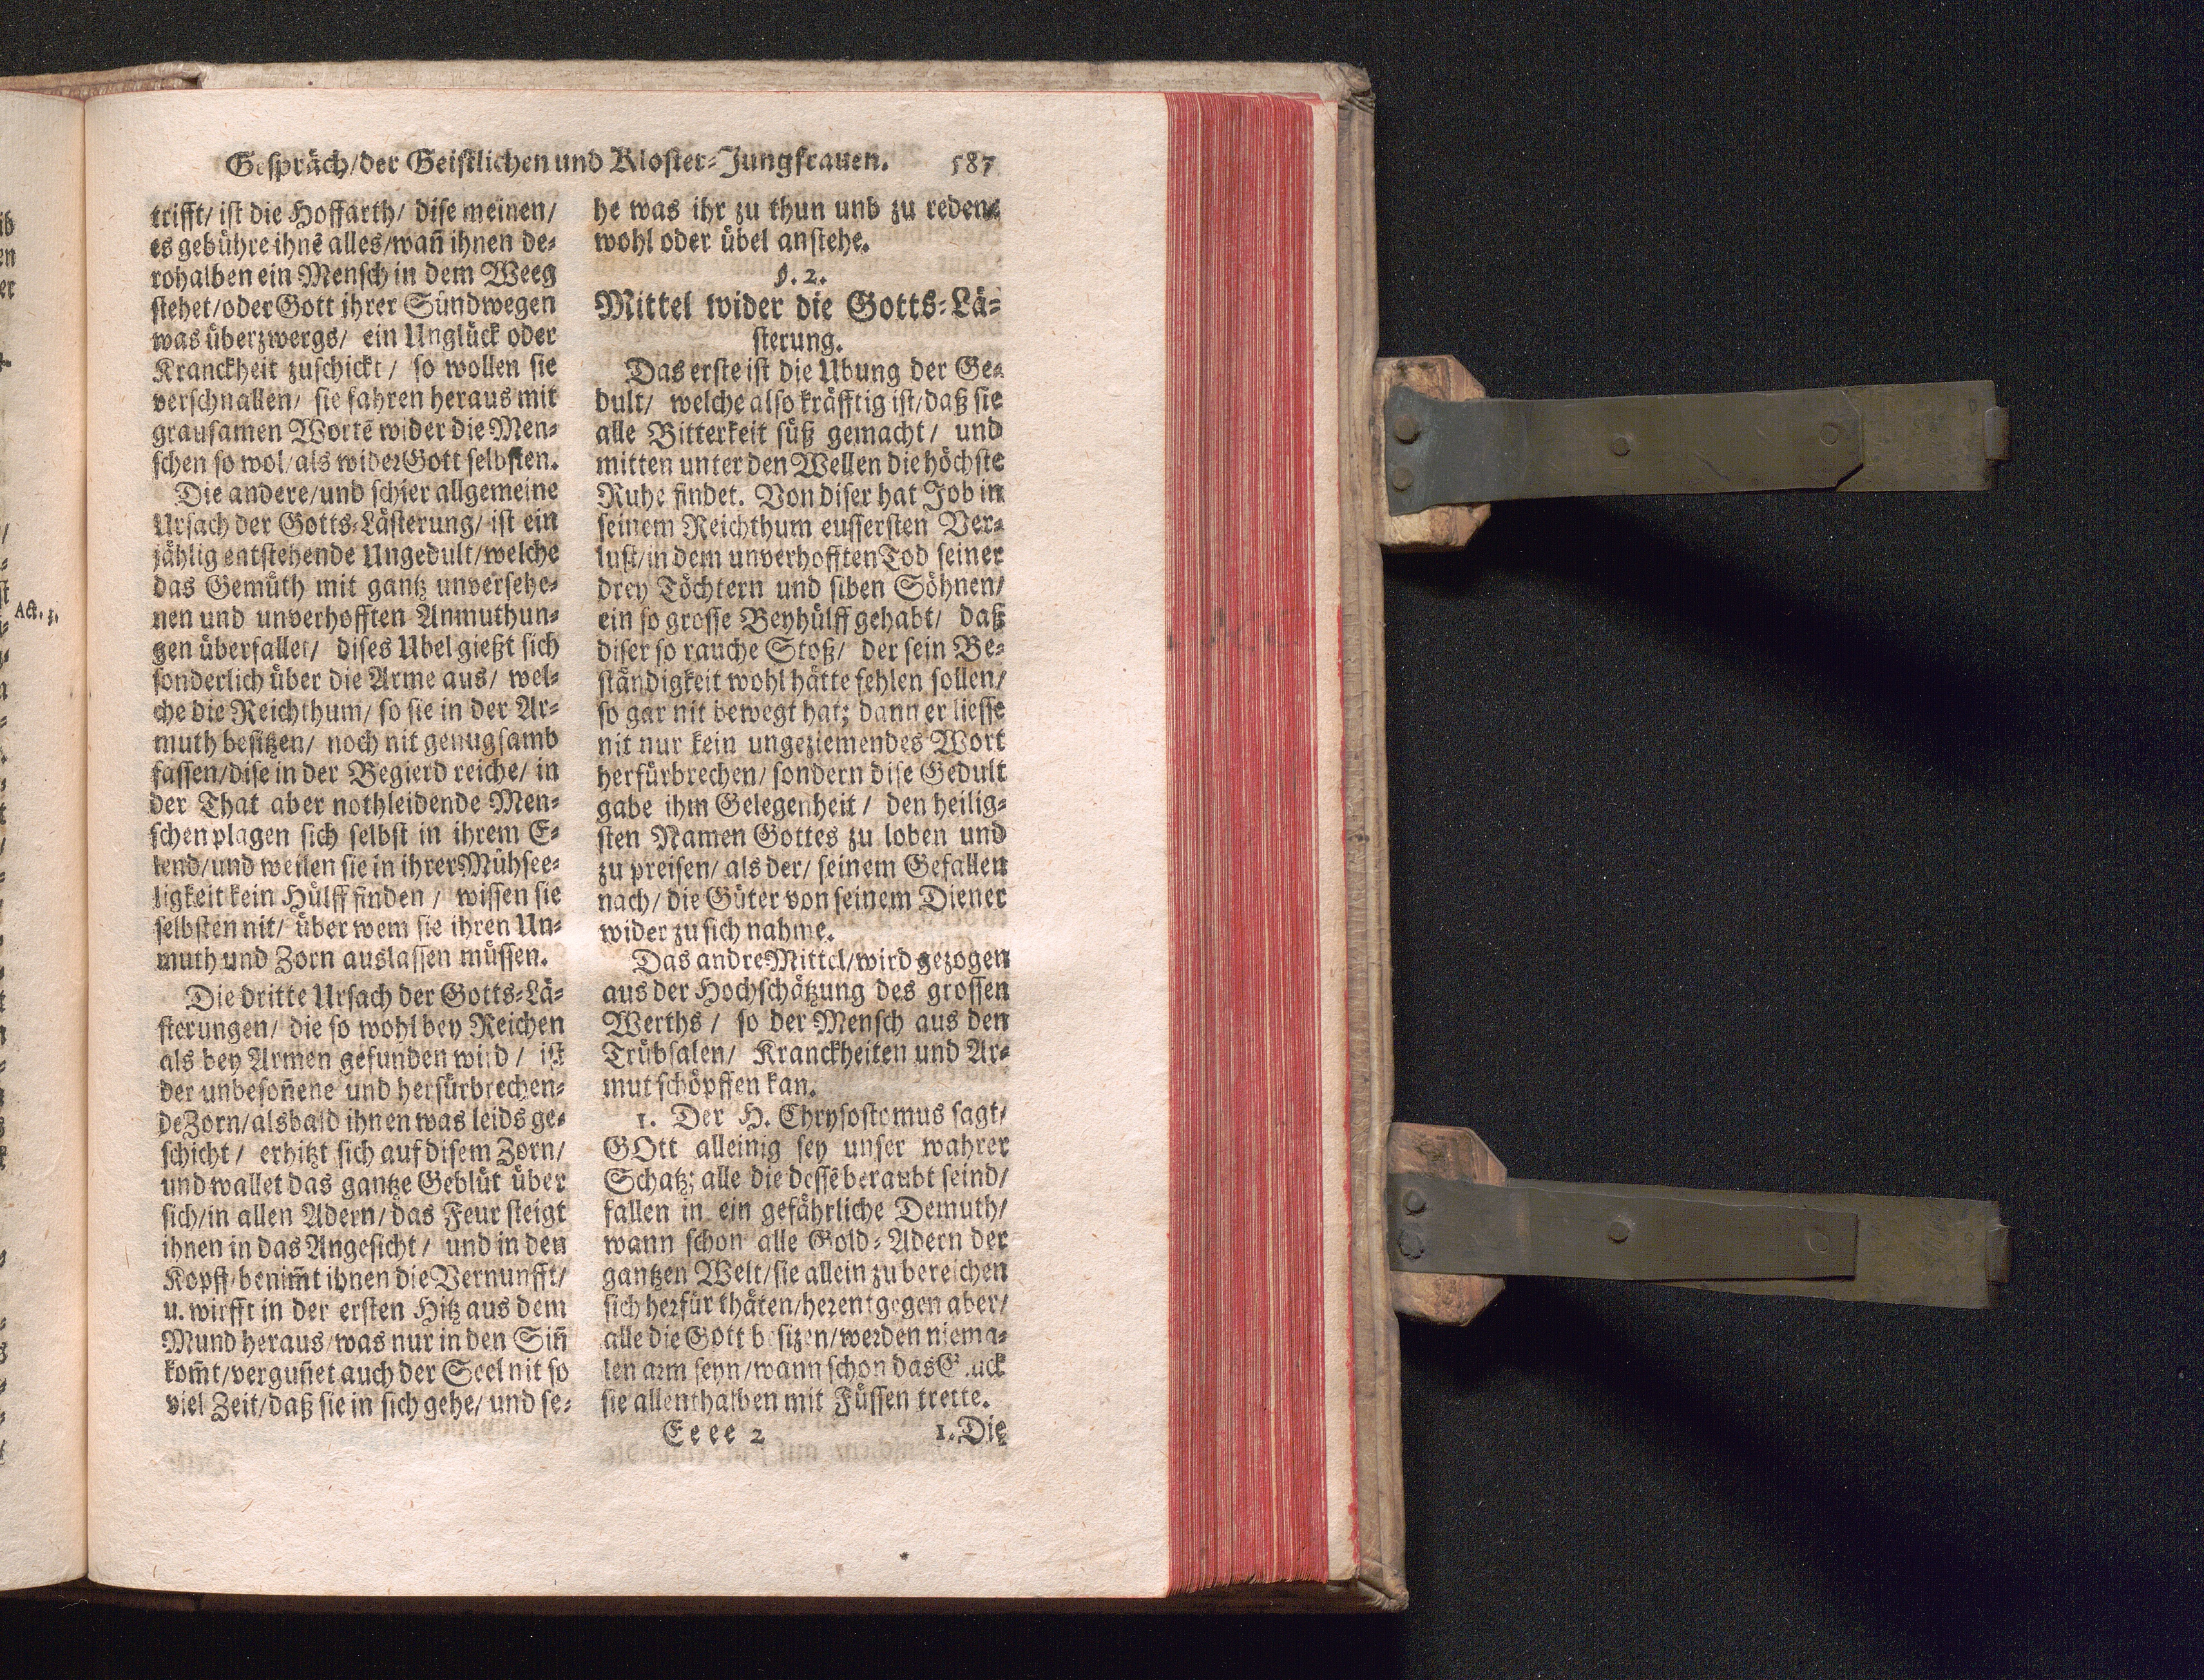 Gespräch/der Geistlichen und Kloster-Jungfrauen. 587
trifft/ ist die Hoffarth/ dise meinen/
es gebühre ihnē alles/wañ ihnen de-
rohalben ein Mensch in dem Weeg
stehet/oder Gott ihrer Sündwegen
was überzwergs/ ein Unglück oder
Kranckheit zuschickt/ so wollen sie
verschnallen/ sie fahren heraus mit
grausamen Wortē wider die Men-
schen so wol/als wider Gott selbsten.
Die andere/und schier allgemeine
Ursach der Gotts-Lästerung/ ist ein
jählig entstehende Ungedult/welche
das Gemüth mit gantz unversehe-
nen und unverhofften Anmuthun-
gen überfallet/ dises Ubel gießt sich
sonderlich über die Arme aus/ wel-
che die Reichthum/ so sie in der Ar-
muth besitzen/ noch nit genugsamb
fassen/dise in der Begierd reiche/ in
der That aber nothleidende Men-
schen plagen sich selbst in ihrem E-
lend/und weilen sie in ihrer Mühsee-
ligkeit kein Hülff finden/ wissen sie
selbsten nit/ über wem sie ihren Un-
muth und Zorn auslassen müssen.
Die dritte Ursach der Gotts-Lä-
sterungen/ die so wohl bey Reichen
als bey Armen gefunden wird/ ist
der unbesoñene und herfürbrechen-
de Zorn/alsbald ihnen was leids ge-
schicht/ erhitzt sich auf disem Zorn/
und wallet das gantze Geblüt über
sich/in allen Adern/das Feur steigt
ihnen in das Angesicht/ und in den
Kopff/benim̃t ihnen die Vernunfft/
u. wirfft in der ersten Hitz aus dem
Mund heraus/was nur in den Siñ
kom̃t/verguñet auch der Seel nit so
viel Zeit/daß sie in sich gehe/ und se-
he was ihr zu thun und zu reden/
wohl oder übel anstehe.
§. 2.
Mittel wider die Gotts-Lä-
sterung.
Das erste ist die Übung der Ge-
dult/ welche also kräfftig ist/daß sie
alle Bitterkeit süß gemacht/ und
mitten unter den Wellen die höchste
Ruhe findet. Von diser hat Job in
seinem Reichthum eussersten Ver-
lust/in dem unverhofften Tod seiner
drey Töchtern und siben Söhnen/
ein so grosse Beyhülff gehabt/ daß
diser so rauche Stoß/ der sein Be-
ständigkeit wohl hätte fehlen sollen/
so gar nit bewegt hat; dann er liesse
nit nur kein ungeziemendes Wort
herfürbrechen/sondern dise Gedult
gabe ihm Gelegenheit/ den heilig-
sten Namen Gottes zu loben und
zu preisen/ als der/ seinem Gefallen
nach/ die Güter von seinem Diener
wider zu sich nahme.
Das andre Mittel/wird gezogen
aus der Hochschätzung des grossen
Werths/ so der Mensch aus den
Trübsalen/ Kranckheiten und Ar-
mut schöpffen kan.
1. Der H. Chrysostomus sagt/
GOtt alleinig sey unser wahrer
Schatz; alle die dessē beraubt seind/
fallen in ein gefährliche Demuth/
wann schon alle Gold-Adern der
gantzen Welt/sie allein zu bereichen
sich herfür thäten/herentgegen aber/
alle die Gott besizen/werden niema-
len arm seyn/wann schon das
sie allenthalben mit Füssen trette.
Eeee 2 1. Die
Act. 5.